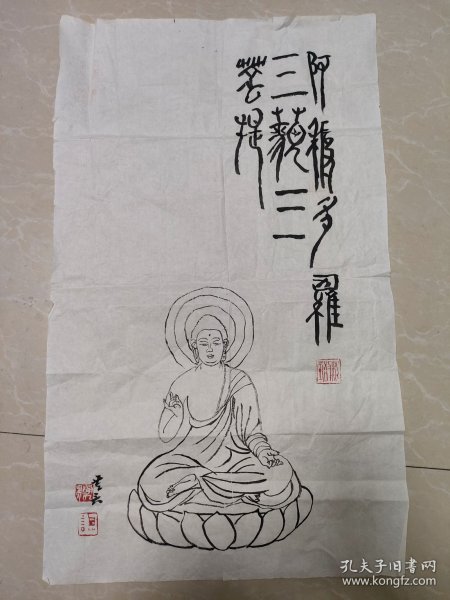 阿耨多羅
三藐三
菩提
孔夫子旧书网
www.kongfz.com